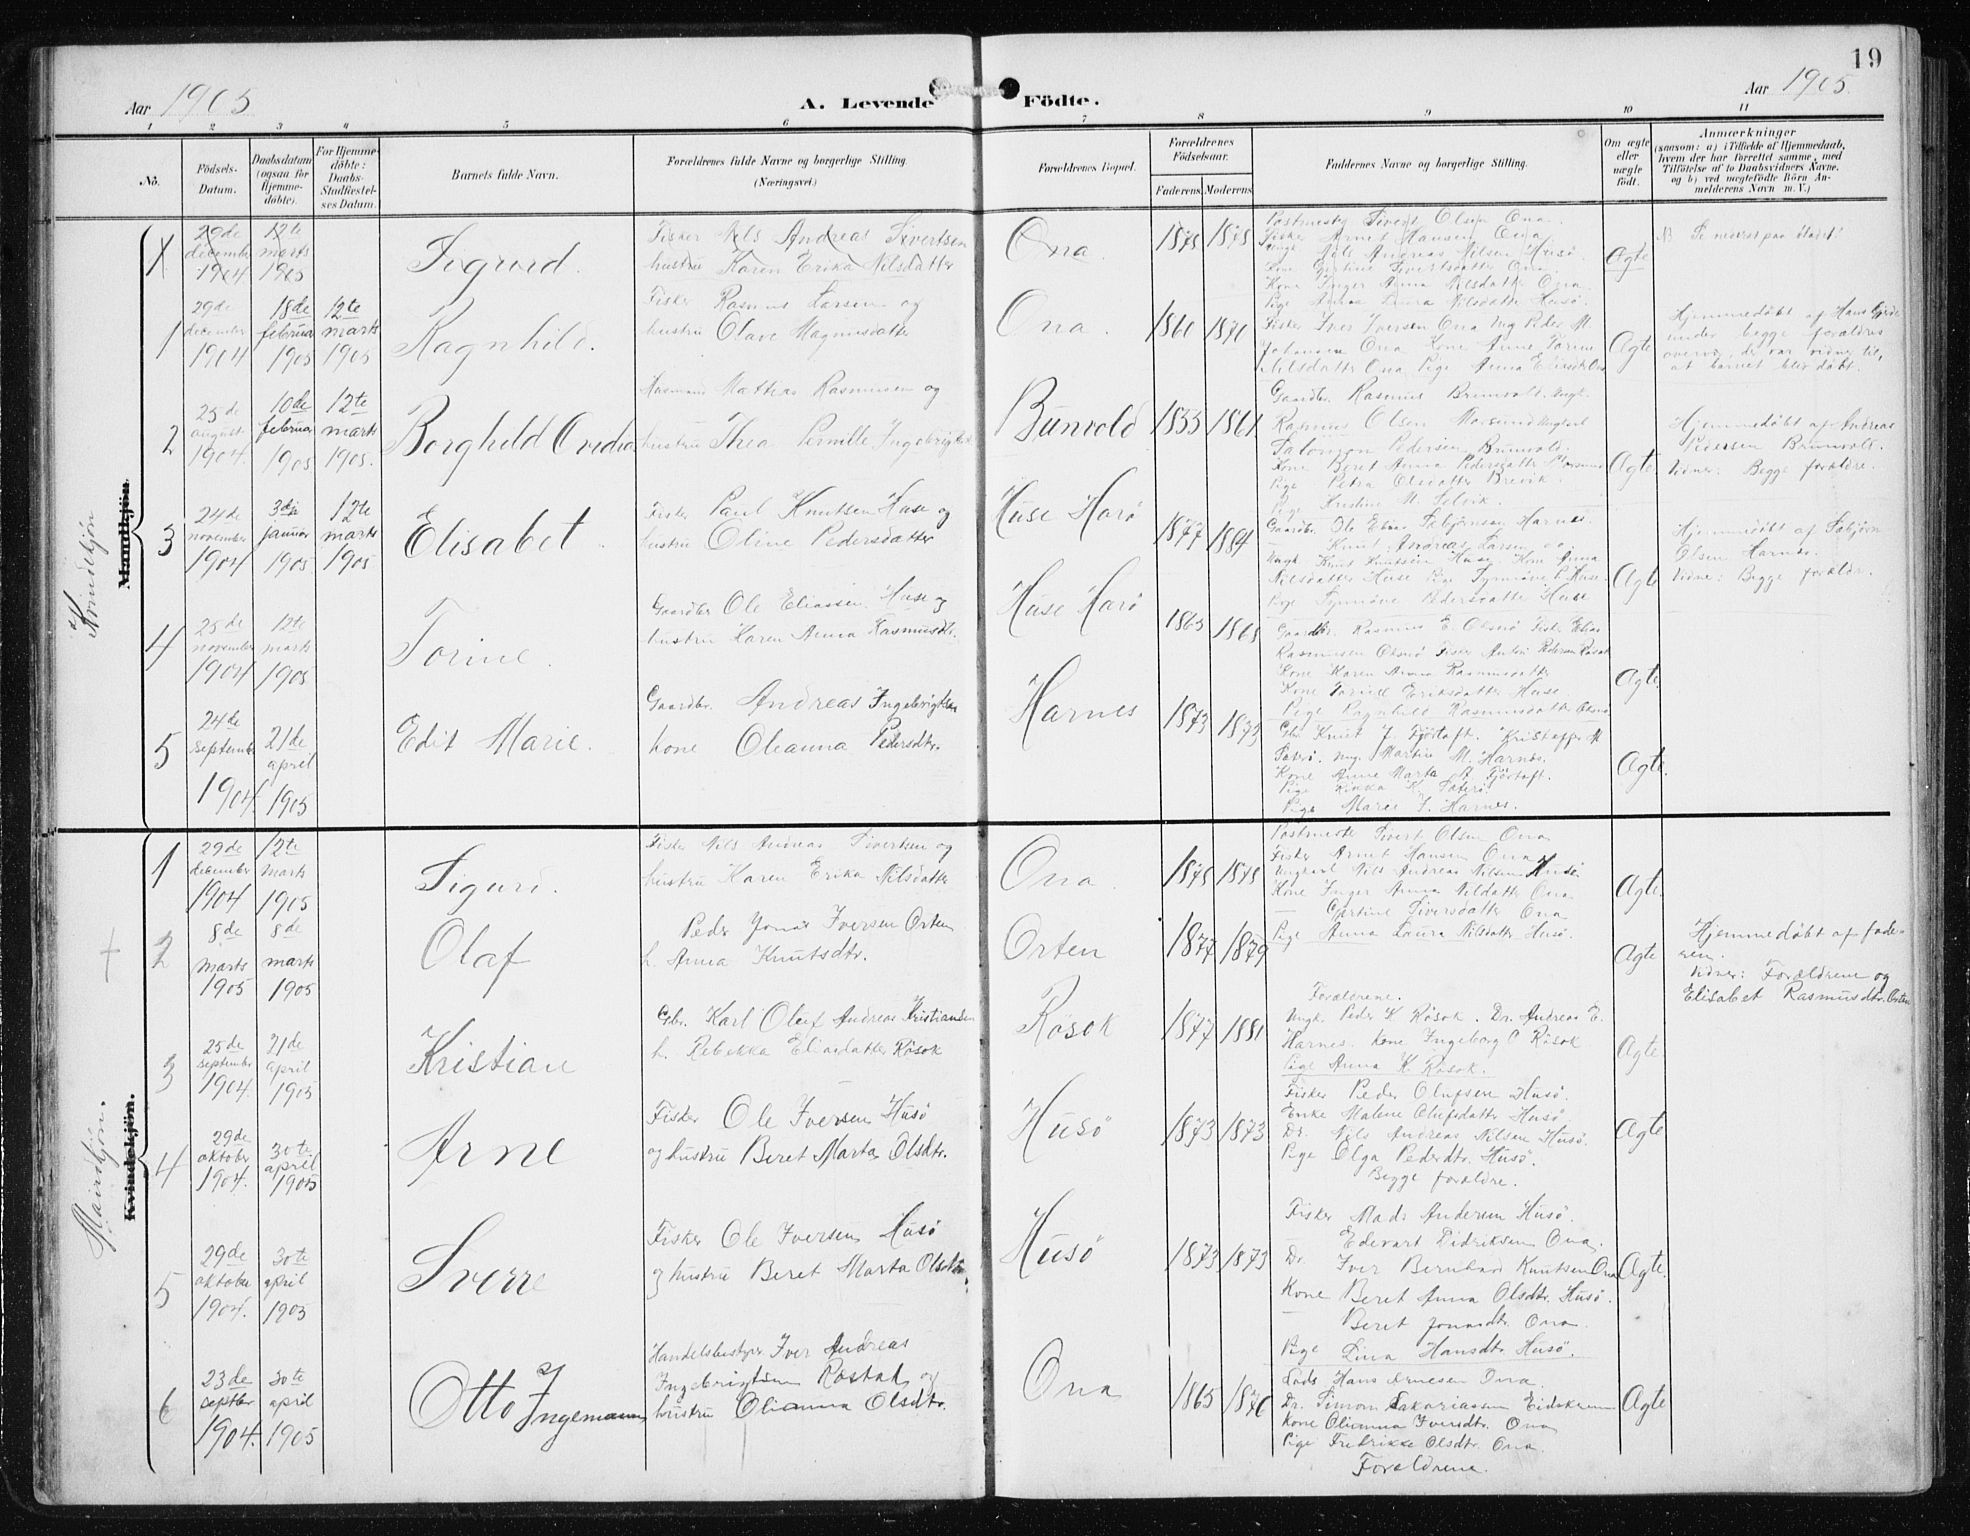 19
Aar 1905
A. Levende Födte.
Aar 1905.
1 2 3 4 5 6 7 8 9 10 11
No.
Födsels-Datum.
Daabsdatum (ogsaa for Hjemme-döbte).
For Hjemme-döbte: Daabs-Stadfæstel-ses Datum.
Barnets fulde Navn.
Forældrenes fulde Navne og borgerlige Stilling.
(Næringsvei.)
Forældrenes Bopæl.
Forældrenes Födselsaar.
Faderens Moderens
Faddernes Navne og borgerlige Stilling.
Om ægte eller uægte födt.
Anmærkninger
(saasom: a) i Tilfælde af Hjemmedaab,
hvem der har forrettet samme, med
Tilföielse af to Daabsvidners Navne,
og b) ved uægtefödte Börn An-
melderens Navn m. V.)
Mandkjön.
Kvindekjön
1
29de december 1904
12te marts 1905
Sigurd.
Fisker Nils Andreas Sivertsen
hustru Karen Erika Nilsdatter
Ona.
1878 1878
Postmester Sivert Olsen Ona.
Fisker Arnt Hansen Ona
Nils Andreas Nilsen Husö.
Kone Inger Anna Nilsdatter Ona
Pige Anna Laura Nilsdatter Husö.
Ægte
Se nederst paa bladet!
1
29de december 1904
18de februar 1905
12te marts 1905
Ragnhild.
Fisker Rasmus Larsen og
hustru Olave Magnusdatter
Ona.
1860 1870
Fisker Iver Iversen Ona Ung Peder M.
Johansen Ona Kone Anne Torine
Nilsdatter Ona Pige Anna
Ægte
Hjemmedöbt af Hans
under begge forældres
overvær, der var vidner til,
at barnet blev döbt.
2
25de august 1904.
10de februar 1905
12te marts 1905.
Borghild Ovidia
Husmand Mathias Rasmusen og
hustru Thea Pernille
1855 1861
Gaardbr. Rasmus Brunvold. Ungk.
Rasmus Olsen
Salomon Pedersen Brunvold.
Kone Beret Anna Pedersdatter
Pige Petra Olsdatter Brevik.
Pige Kristine M. Selvik.
Ægte.
Hjemmedöbt af Andreas
Pedersen Brunvold.
Vidner: Begge forældre.
3
24de november 1904
3die januar 1905
12te marts 1905
Elisabet.
Fisker Paul Knutsen Huse og
hustru Oline Pedersdatter
Huse Harö
1877 1884
Gaardbr. Ole
Knut Andreas Larsen
Ungk. Knut Knutsen Huse. Kone Anna
Nilsdatter Huse Pige Synnöve P. Huse.
Pige Synnöve Pedersdatter Huse
Ægte
Hjemmedöbt af
Olsen Harnes.
Vidne: Begge forældre.
4
25de november 1904
12te marts 1905
Torine.
Gaardbr Ole Eliassen Huse og
hustru Karen Anna Rasmusdtr.
Huse Harö
1865 1868
Gaardbr. Rasmus E. Fisker Elias
Rasmusen Fisker Pedersen Rösok
Kone Karen Anna Rasmusdatter
Kone Eriksdatter Huse
Pige Ragnhild Rasmusdatter
Ægte.
5
24de september 1904
21de april 1905
Edit Marie.
Gaardbr. Andreas Ingebrigtsen
kone Oleanna Pedersdtr.
Harnes
1873 1873
Gbr Knut J. Fjörtoft. Kristoffer M.
Ung. Martin M. Harnes.
Kone Anne Marta A. Fjörtoft.
Pige Marie J. Harnes.
Ægte.
Kvindekjön.
Mandkjön.
1
29de december 1904
12te marts 1905
Sigurd.
Fisker Nils Andreas Sivertsen og
hustru Karen Erika Nilsdatter
Ona.
1878 1878
Postmester Sivert Olsen Ona
Fisker Arnt Hansen Ona
Ungkarl Nils Andreas Nilsen Husö.
Kone Inger Anna Nilsdatter Ona
— Gjertine Siversdatter Ona
Pige Anna Laura Nilsdatter Husö.
Ægte
+
2
8de marts 1905
8de marts 1905
Olaf
Peder Jonas Iversen Orten
h. Anna Knutsdtr.
Orten
1877 1879
Forældrene.
Ægte
Hjemmedöbt af fade-
ren.
Vidner: Forældrene og
Elisabet Rasmusdtr. Orten
3
25de september 1904.
21de april 1905
Kristian
Gbr. Karl Oluf Andreas Kristiansen
h. Rebekka Eliasdatter Rösok
Rösok
1877 1881
Ungk. Peder K Rösok. Dr. Andreas E.
Harnes. Kone Ingeborg O Rösok
Pige Anna K. Rösok.
Ægte
4
29de oktober 1904.
30te april 1905
Arne
Fisker Ole Iversen Husö
og hustru Beret Marta Olsdtr.
Husö
1873 1873
Fisker Peder Olufsen Husö.
Enke Malene Olufsdatter Husö.
Dr. Nils Andreas Nilsen Husö.
Pige Olga Pedersdtr. Husö.
Begge forældre.
Ægte
5
29de oktober 1904.
30te april 1905
Sverre
Fisker Ole Iversen Husö
og hustru Beret Marta Olsdtr.
Husö
1873 1873
Fisker Mads Andersen Husö.
Edevart Didriksen Ona.
Dr. Iver Bernhard Knutsen Ona
Kone Beret Anna Olsdtr. Husö.
— Beret Jonasdtr. Ona.
Pige Lina Hansdtr. Husö.
Ægte.
6
23de septber 1904.
30te april 1905
Otto Ingemann
Handelsbestyrer Iver Andreas
Ingebrigtsen Röstok og
hustru Olianna Olsdtr.
Ona
1865 1876
Hans Arnesen Ona.
Dr. Simon Sakariassen
Kone Olianna Iversdtr. Ona
Pige Fredrikke Olsdtr. Ona.
Forældrene.
Ægte